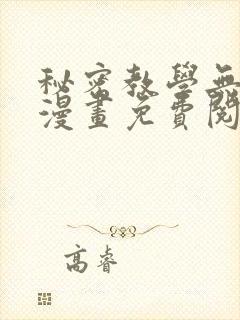 秘密教學無
漫畫免費閱
高睿